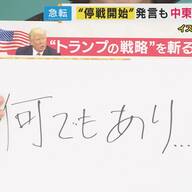 急転 "停戦開始"発言も 中東
イス
"トランプの戦略"を斬る
何でもあり...